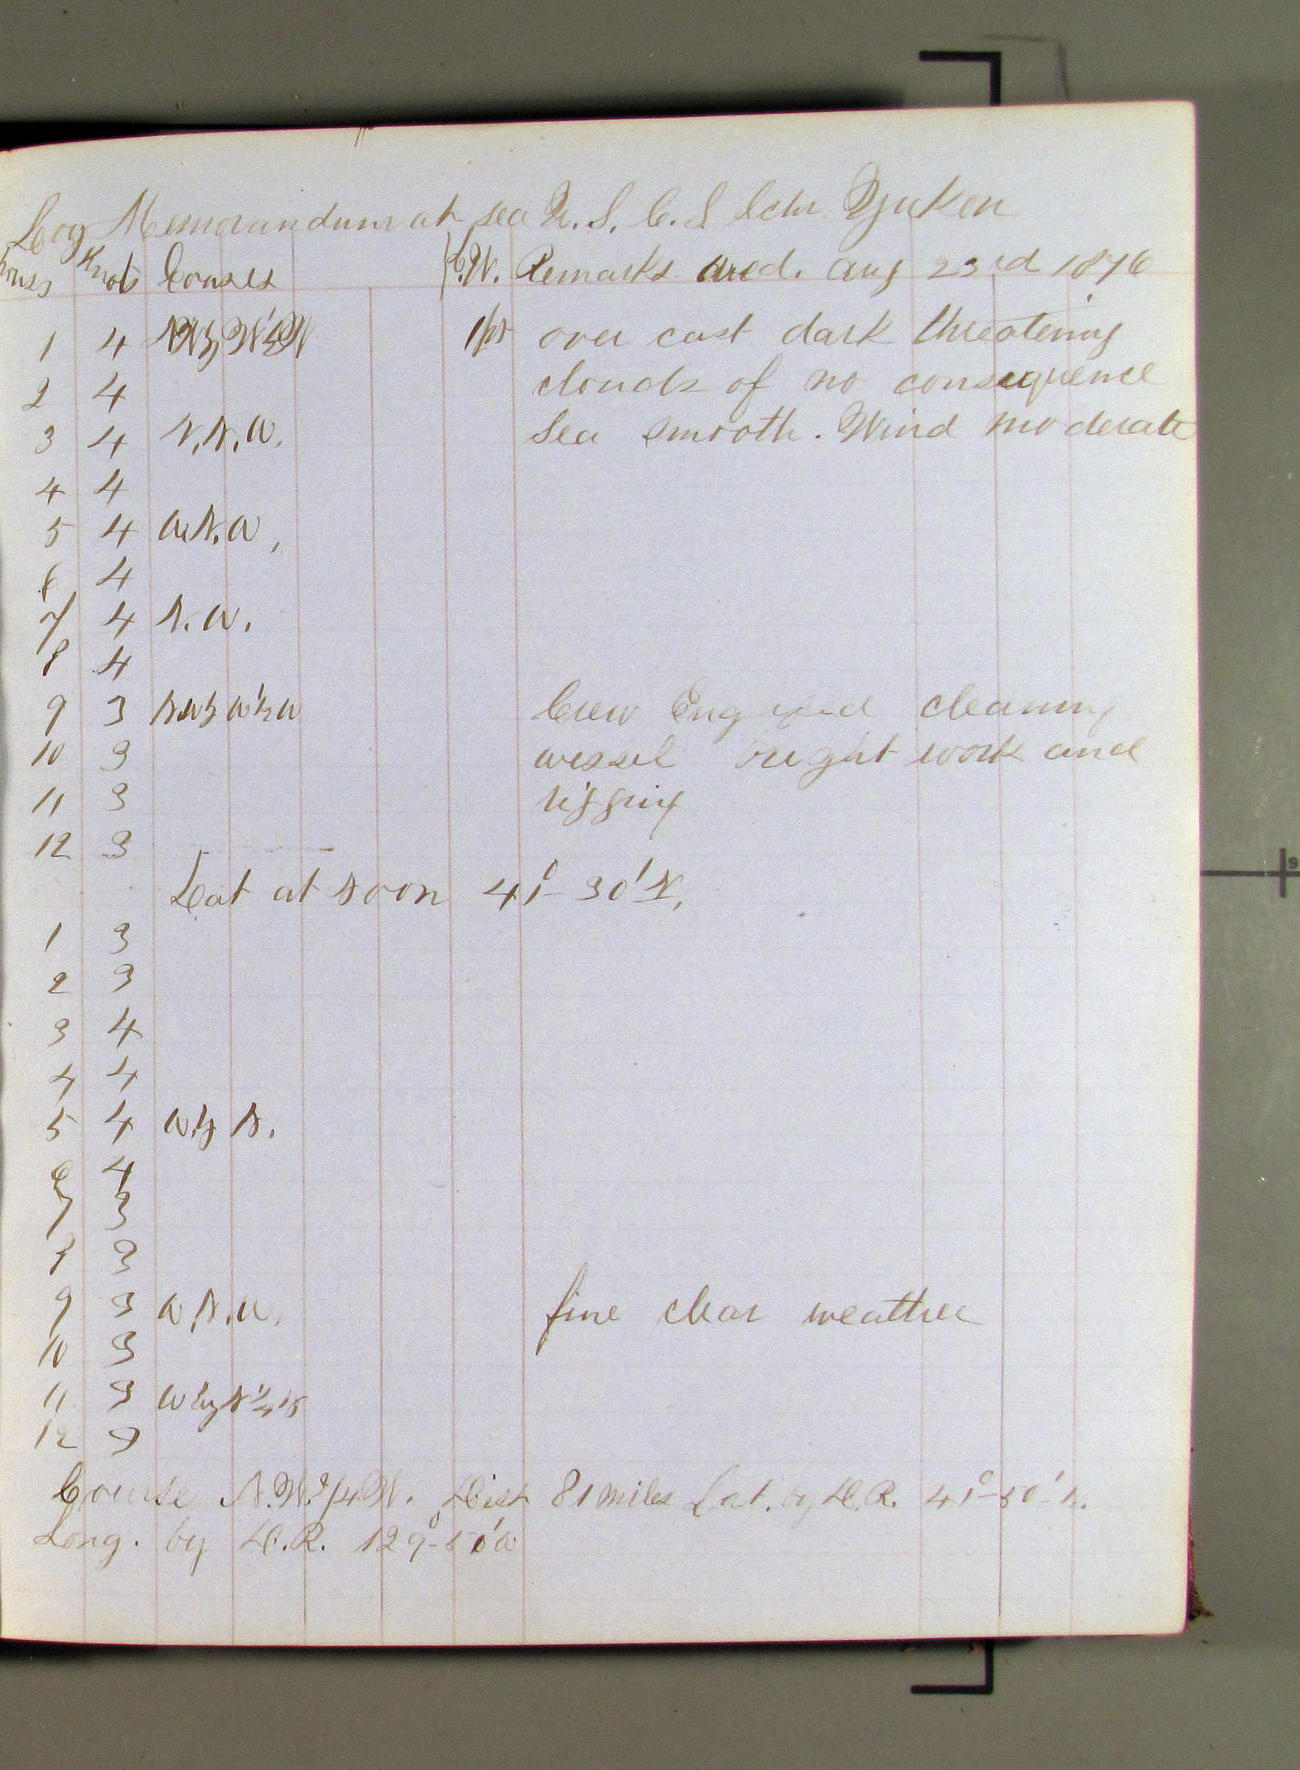 Log Memorandum at sea U. S. C. S Schr Yukon
hours Knots Courses L.W. Remarks Wed. Aug 23rd 1876
1 4 1pt over cast dark threatening
2 4 clouds of no consequence
3 4 N.N.W. Sea smooth. Wind moderate
4 4
5 4 W.N.W,
6 4
7 4 N.W.
8 4
9 3 Crew Engaged cleaning
10 3 vessel bright work and
11 3 rigging
12 3
Lat at noon 41°-30'N.
1 3
2 3
3 4
4 4
5 4 W.by N.
6 4
7 3
8 3
9 3 W.N.W. fine clear weather
10 3
11 3 W by N 1/4 N
12 3
Course N.W.3/4W. Dist 81 miles Lat. by D.R. 41°-50'N.
Long. by D.R. 129°-50'W